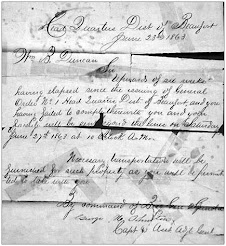 Head Quarters Dist of Beaufort
June 23d 1863
Wm B. Duncan
Sir
Upwards of six weeks
having elapsed since the issuing of General
Order No 1 Head Quarters Dist of Beaufort and you
having failed to comply you and your
family will be sent the lines on Saturday
June 27th 1863 at 10 O'clock A.M.
Necessary transportation will be
furnished for such property as you will be permitted
to take with you
By command of Brig Gen
Capt & Asst Adjt Genl